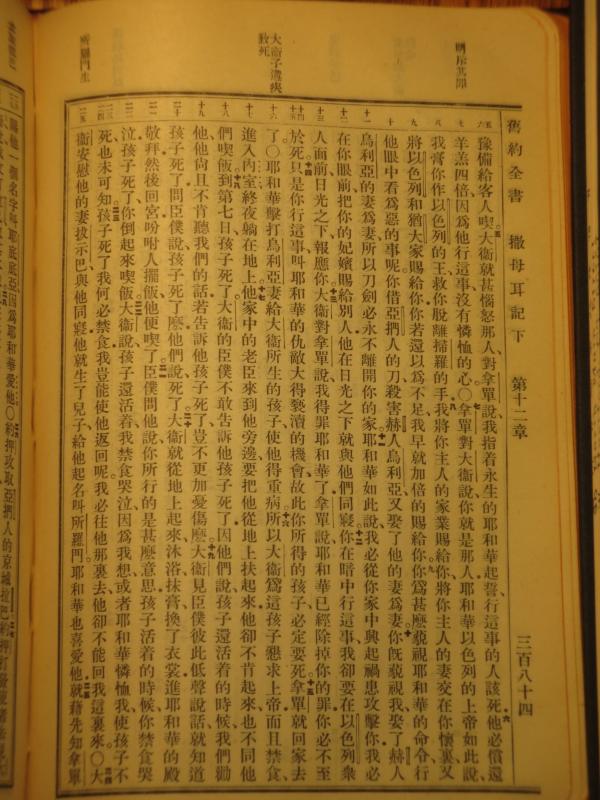 舊約全書 撒母耳記下 第十二章 三百八十四
豫備給客人喫大衞就甚惱怒那人對拿單說我指着永生的耶和華起誓行這事的人該死他必償還
羊羔四倍因爲他行這事沒有憐恤的心○拿單對大衞說你就是那人耶和華以色列的上帝如此說
我膏你作以色列的王救你脫離掃羅的手我將你主人的家業賜給你將你主人的妻交在你懷裏又
將以色列和猶大家賜給你你若還以爲不足我早就加倍的賜給你你爲甚麼藐視耶和華的命令行
他眼中看爲惡的事呢你借亞捫人的刀殺害赫人烏利亞又娶了他的妻爲妻你旣藐視我娶了赫人
烏利亞的妻爲妻所以刀劍必永不離開你的家耶和華如此說我必從你家中興起禍患攻擊你我必
在你眼前把你的妃嬪賜給別人他在日光之下就與他們同寢你在暗中行這事我卻要在以色列衆
人面前日光之下報應你大衞對拿單說我得罪耶和華了拿單說耶和華已經除掉你的罪你必不至
於死只是你行這事叫耶和華的仇敵大得褻瀆的機會故此你所得的孩子必定要死拿單就回家去
大衞子遘疾致死
了○耶和華擊打烏利亞妻給大衞所生的孩子使他得重病所以大衞爲這孩子懇求上帝而且禁食
進入內室終夜躺在地上他家中的老臣來到他旁邊要把他從地上扶起來他卻不肯起來也不同他
們喫飯到第七日孩子死了大衞的臣僕不敢告訴他孩子死了因他們說孩子還活着的時候我們勸
他他尙且不肯聽我們的話若告訴他孩子死了豈不更加憂傷麼大衞見臣僕彼此低聲說話就知道
孩子死了問臣僕說孩子死了麼他們說死了大衞就從地上起來沐浴抹膏換了衣裳進耶和華的殿
敬拜然後回宮吩咐人擺飯他便喫了臣僕問他說你所行的是甚麼意思孩子活着的時候你禁食哭
泣孩子死了你倒起來喫飯大衞說孩子還活着我禁食哭泣因爲我想或者耶和華憐恤我使孩子不
死也未可知孩子死了我何必禁食我豈能使他返回呢我必往他那裏去他卻不能回我這裏來○大
所羅門生
衞安慰他的妻拔示巴與他同寢他就生了兒子給他起名叫所羅門耶和華也喜愛他就藉先知拿單
賜他一個名字叫耶底底亞因爲耶和華愛他○約押攻取亞捫人的京城拉巴